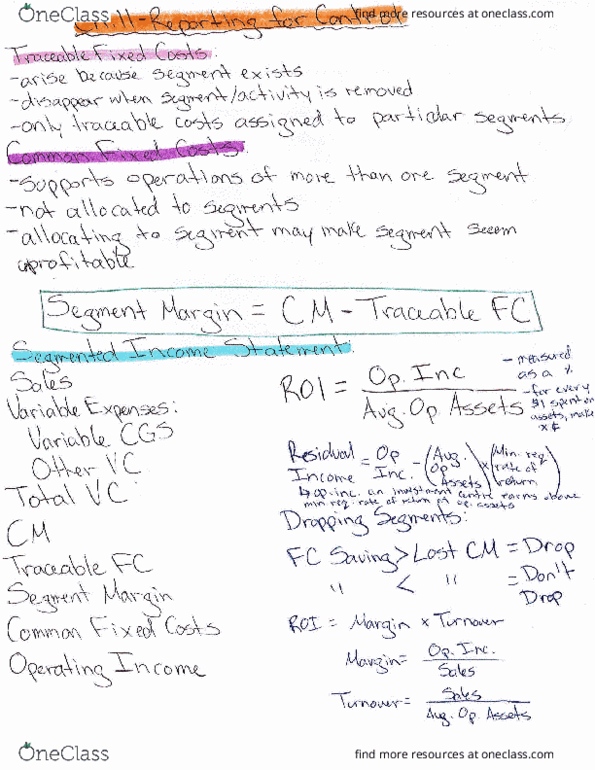 OneClass
find more resources at oneclass.com
Ch.11-Reporting for Control
Traceable Fixed Costs:
-arise because segment exists
-disappear when segment/activity is removed
-only traceable costs assigned to particular segments
Common Fixed Costs:
-supports operations of more than one segment
-not allocated to segments
-allocating to segment may make segment seem
uprofitable
Segment Margin = CM - Traceable FC
Segmented Income Statement:
Sales
Variable Expenses:
Variable CGS
Other VC
Total VC
CM
Traceable FC
Segment Margin
Common Fixed Costs
Operating Income
ROI = Op. Inc / Avg. Op Assets
- measured
as a %
-for every
$1 spent on
assets, make
x $
Residual Income = Op Inc. - (Avg. Op Assets) x (Min. req rate of return)
↳ op. inc. an investment centre earns above
min req. rate of return on op. assets
Dropping Segments:
FC Saving > Lost CM = Drop
" < " = Don't
Drop
ROI = Margin x Turnover
Margin = Op. Inc. / Sales
Turnover = Sales / Avg. Op. Assets
OneClass
find more resources at oneclass.com